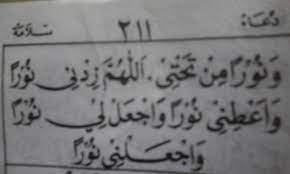 دُعَاءُ ٢١١ سَلَامَة
وَنُوْرًا مِنْ تَحْتِىْ. اَللّٰهُمَّ زِدْنِىْ نُوْرًا
وَاَعْطِنِىْ نُوْرًا وَاجْعَلْ لِىْ نُوْرًا
وَاجْعَلْنِىْ نُوْرًا